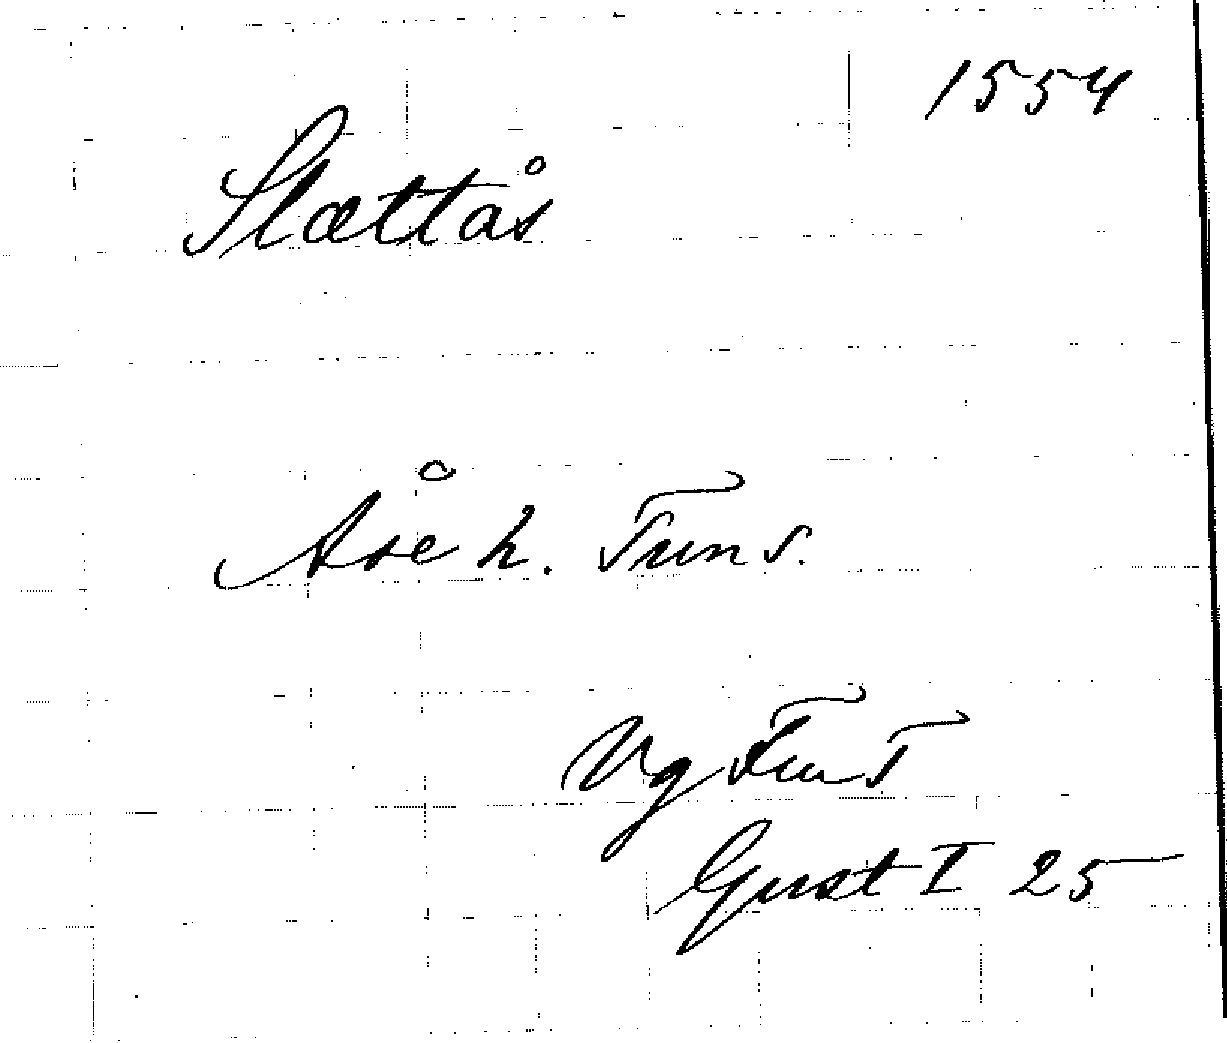 1554
Slættås
Åse h. Tun s.
Vg Tun T
Gust I 25